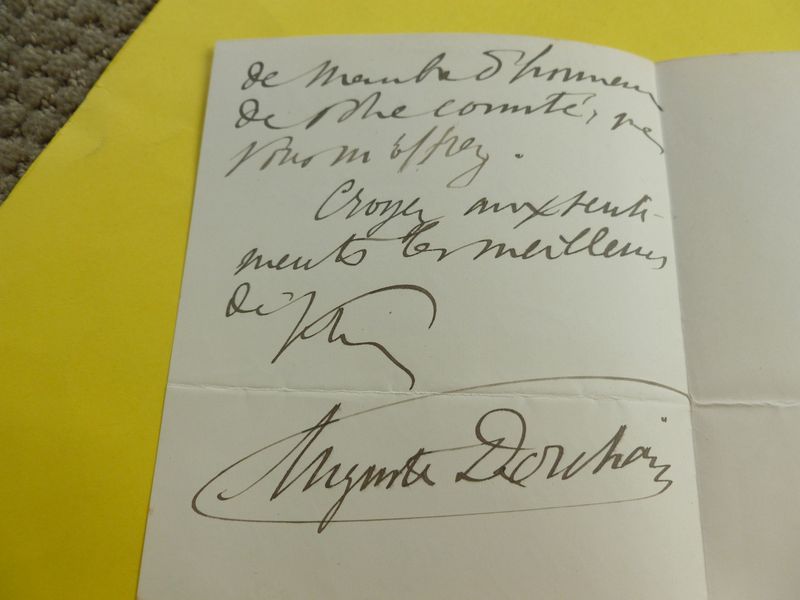 de membre d'honneur
de votre comité, que
vous m'offrez.
Croyez aux senti-
ments les meilleurs
de
Auguste Dorchain